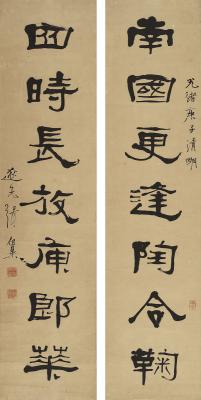 南國更逢陶令鞠
光緒庚子清明
四時長放庾郎華